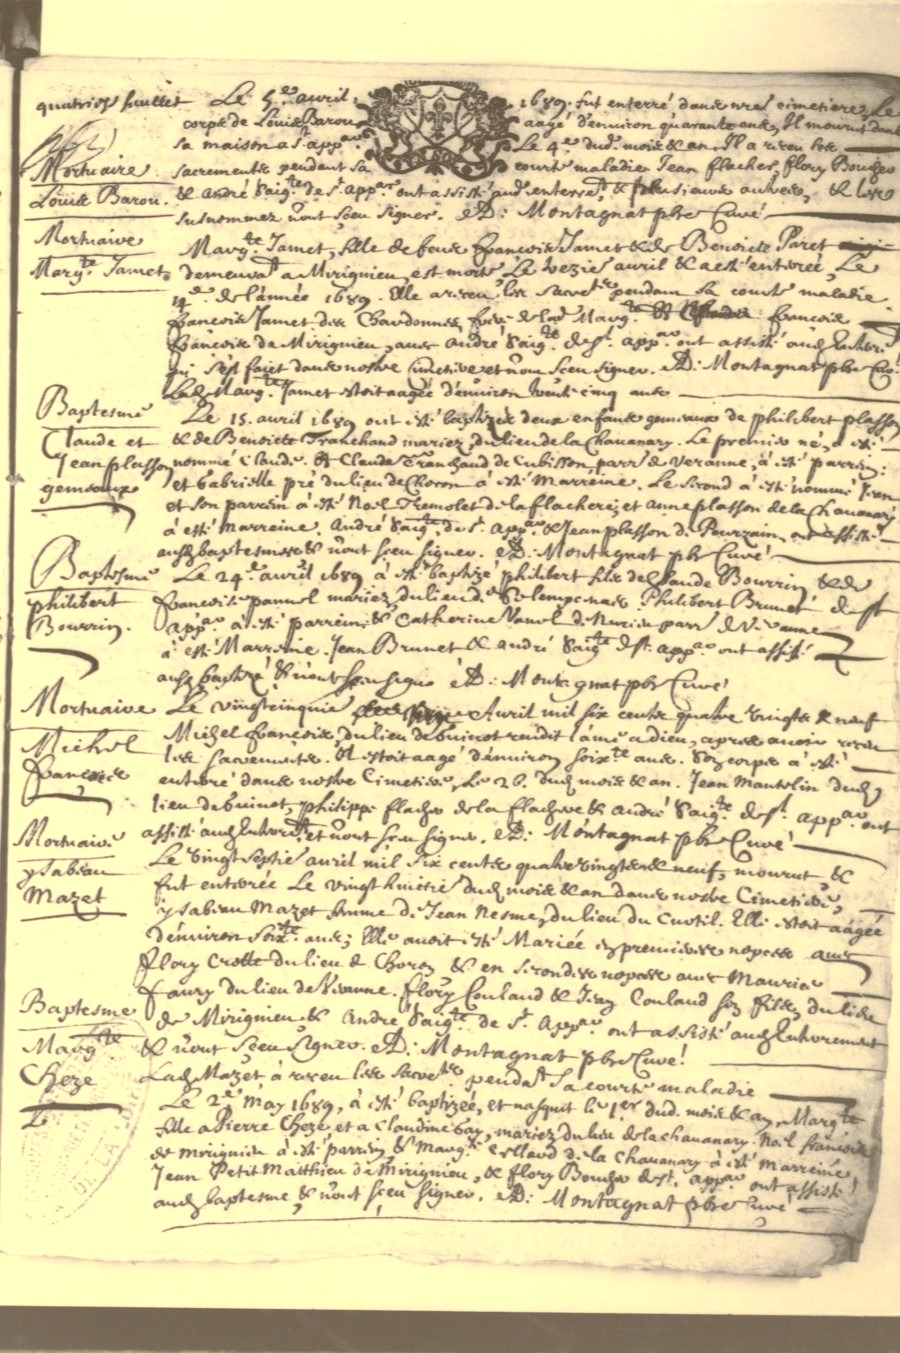 quatries feuillet Le 5e avril 1689. fut enterré dans nre cimetiere, Le
corps de Louise Barou aagé d'environ quarante ans, Il mourut dans
sa maison a St. appar Le 4e dud. mois & an, Il a receu les
Mortuaire sacrements pendant sa courte maladie Jean flacher, flory Bouchez
Louise Barou. & André Saigte de St. appar ont assisté aud. enterremt, & plusieurs autres, & les
susnommez n'ont sceu signer. AD: Montagnat pbre Curé
Mortuaire Margte Jamet, fille de feu francois Jamet & de Benoicte Paret
Margte Jamet demeurat a Mirignieu, est morte Le avril & a esté enterée, Le
14e de l'année 1689. Elle a receu les sacrets pendant sa courte maladie
francois Jamet des Chardonnes, frere de lad Margte francois
francois de Mirignieu, avec André Saigte de St. appar ont assisté aud
qui s'est faict dans nostre cimetiere et n'ont sceu signer. AD: Montagnat pbre Cu
Lad Margte Jamet estoit aagée d'environ cinq ans
Baptesme Le 15. avril 1689 ont esté baptizés deux enfans gemeaux de philibert plasson
Claude et & de Benoicte Tranchand mariez, du lieu de la Chavanary. Le premier né, a esté
Jean plasson nommé Claude. Et Claude Tranchand de Cubisson, parr. de Veranne, a esté parrein:
gemeaux et Gabrielle pré du lieu de Choron a esté Marreine. Le second a esté nommé Jean
et son parrein a esté Noel Tremolet de la flachere, et anne plasson de la Chavanary
a esté Marreine. André Saigte, de St. appar & Jean plasson de Pourzain, ont assisté
aud baptesmes & n'ont sceu signer. AD: Montagnat pbre Curé
Baptesme Le 24e avril 1689 a esté baptizé philibert fils de Claude Bourrin, & de
philibert francoise pannel mariez du lieu de Philibert Brunet de St
Bourrin. appar a esté parrein; & Catherine Vanel de parr. de Veranne
a esté Marreine. Jean Brunet & andré Saigte de St. appar ont assisté
aud baptesme & n'ont sceu signé AD: Montagnat pbre Curé
Mortuaire Le vingtcinquie Avril mil six cents quatre vingts & neuf
Michel Michel francois, du lieu de buinet rendit l'ame a dieu, apres avoir receu
francois les sacrements. Il estoit aagé d'environ soixte ans. Son corps a esté
enterré dans nostre Cimetiere, Le 26. dud mois & an. Jean Mantelin dud
lieu de buinet, philippe flacher de la flachere & andré Saigte de St. appar ont
Mortuaire assisté aud et n'ont sceu signer. AD: Montagnat pbre Curé
ysabeau Le vingt septie avril mil six cents quatre vingts & neuf, mourut, &
Mazet fut enterrée Le vingt huictie dud mois & an dans nostre Cimetiere,
ysabeau Mazet femme de Jean Nesme, du lieu du Curtil. Elle estoit aagée
d'environ soixte ans; Elle avoit esté Mariée en premieres nopces avec
flory Crotte du lieu de Choron & en secondes nopces avec Maurice
faury du lieu de Veranne. flory Couland & Jean Couland son fils, du lieu
Baptesme de Mirignieu & André Saigte de St. appar ont assisté aud enterrement
Margte & n'ont sceu signer. AD: Montagnat pbre Curé!
Cheze Lad Mazet a receu les sacrets pendat sa courte maladie
Le 2e May 1689, a esté baptizée, et nasquit le 1er dud. mois & an, Margte
fille a Pierre Cheze et a Claudine Gay, mariez du lieu de la chavanary. Noel francois
de Mirignieu a esté parrein, & Margte Collard de la Chavanary a esté Marreine
Jean Petit Matthieu de Mirignieu, & flory Bouchez de St. appar ont assisté
aud baptesme & n'ont sceu signer. AD: Montagnat pbre Curé